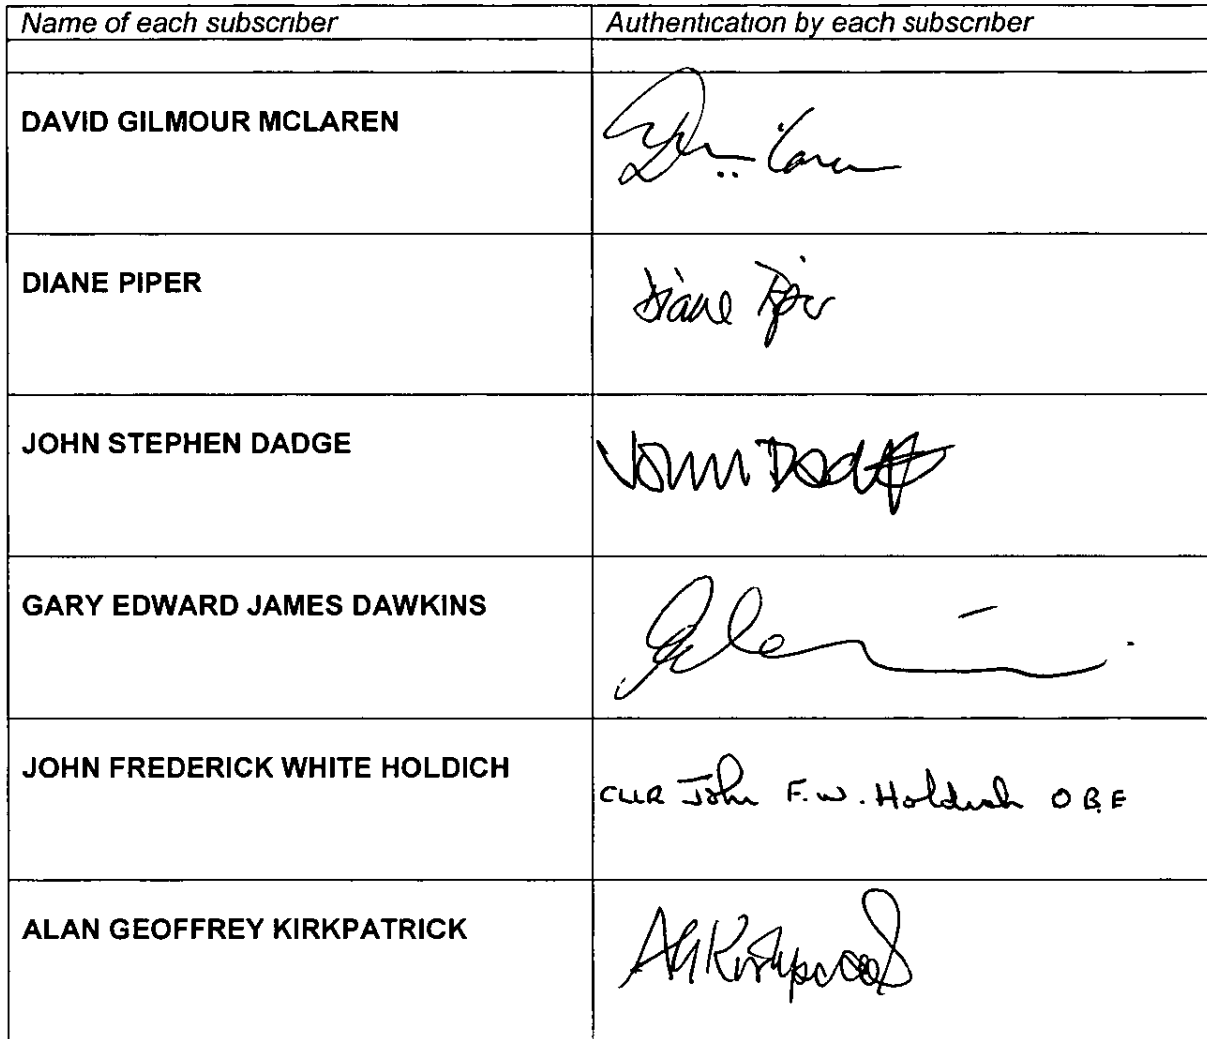 Name of each subscriber Authentication by each subscriber
DAVID GILMOUR MCLAREN
DIANE PIPER Diane Piper
JOHN STEPHEN DADGE John Dadge
GARY EDWARD JAMES DAWKINS
JOHN FREDERICK WHITE HOLDICH CLLR John F.W. Holdich OBE
ALAN GEOFFREY KIRKPATRICK